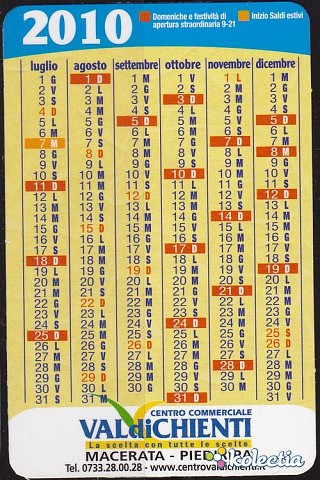 2010
Domeniche e festività di apertura straordinaria 9-21
Inizio Saldi estivi
luglio agosto settembre ottobre novembre dicembre
1 G 1 D 1 M 1 V 1 L 1 M
2 V 2 L 2 G 2 S 2 M 2 G
3 S 3 M 3 V 3 D 3 M 3 V
4 D 4 M 4 S 4 L 4 G 4 S
5 L 5 G 5 D 5 M 5 V 5 D
6 M 6 V 6 L 6 M 6 S 6 L
7 M 7 S 7 M 7 G 7 D 7 M
8 G 8 D 8 M 8 V 8 L 8 M
9 V 9 L 9 G 9 S 9 M 9 G
10 S 10 M 10 V 10 D 10 M 10 V
11 D 11 M 11 S 11 L 11 G 11 S
12 L 12 G 12 D 12 M 12 V 12 D
13 M 13 V 13 L 13 M 13 S 13 L
14 M 14 S 14 M 14 G 14 D 14 M
15 G 15 D 15 M 15 V 15 L 15 M
16 V 16 L 16 G 16 S 16 M 16 G
17 S 17 M 17 V 17 D 17 M 17 V
18 D 18 M 18 S 18 L 18 G 18 S
19 L 19 G 19 D 19 M 19 V 19 D
20 M 20 V 20 L 20 M 20 S 20 L
21 M 21 S 21 M 21 G 21 D 21 M
22 G 22 D 22 M 22 V 22 L 22 M
23 V 23 L 23 G 23 S 23 M 23 G
24 S 24 M 24 V 24 D 24 M 24 V
25 D 25 M 25 S 25 L 25 G 25 S
26 L 26 G 26 D 26 M 26 V 26 D
27 M 27 V 27 L 27 M 27 S 27 L
28 M 28 S 28 M 28 G 28 D 28 M
29 G 29 D 29 M 29 V 29 L 29 M
30 V 30 L 30 G 30 S 30 M 30 G
31 S 31 M 31 D 31 V
CENTRO COMMERCIALE
VALdiCHIENTI
La scelta con tutte le scelte
MACERATA -
Tel. 0733.28.00.28 - www.centrovaldichienti.it
kolectia